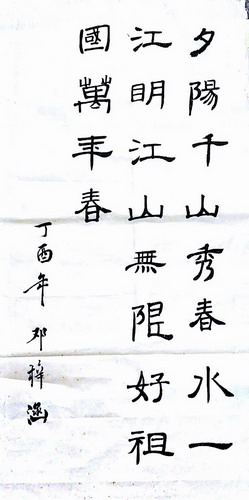 夕陽千山秀春水一
江明江山無限好祖
國萬年春
丁酉年 邓梓涵